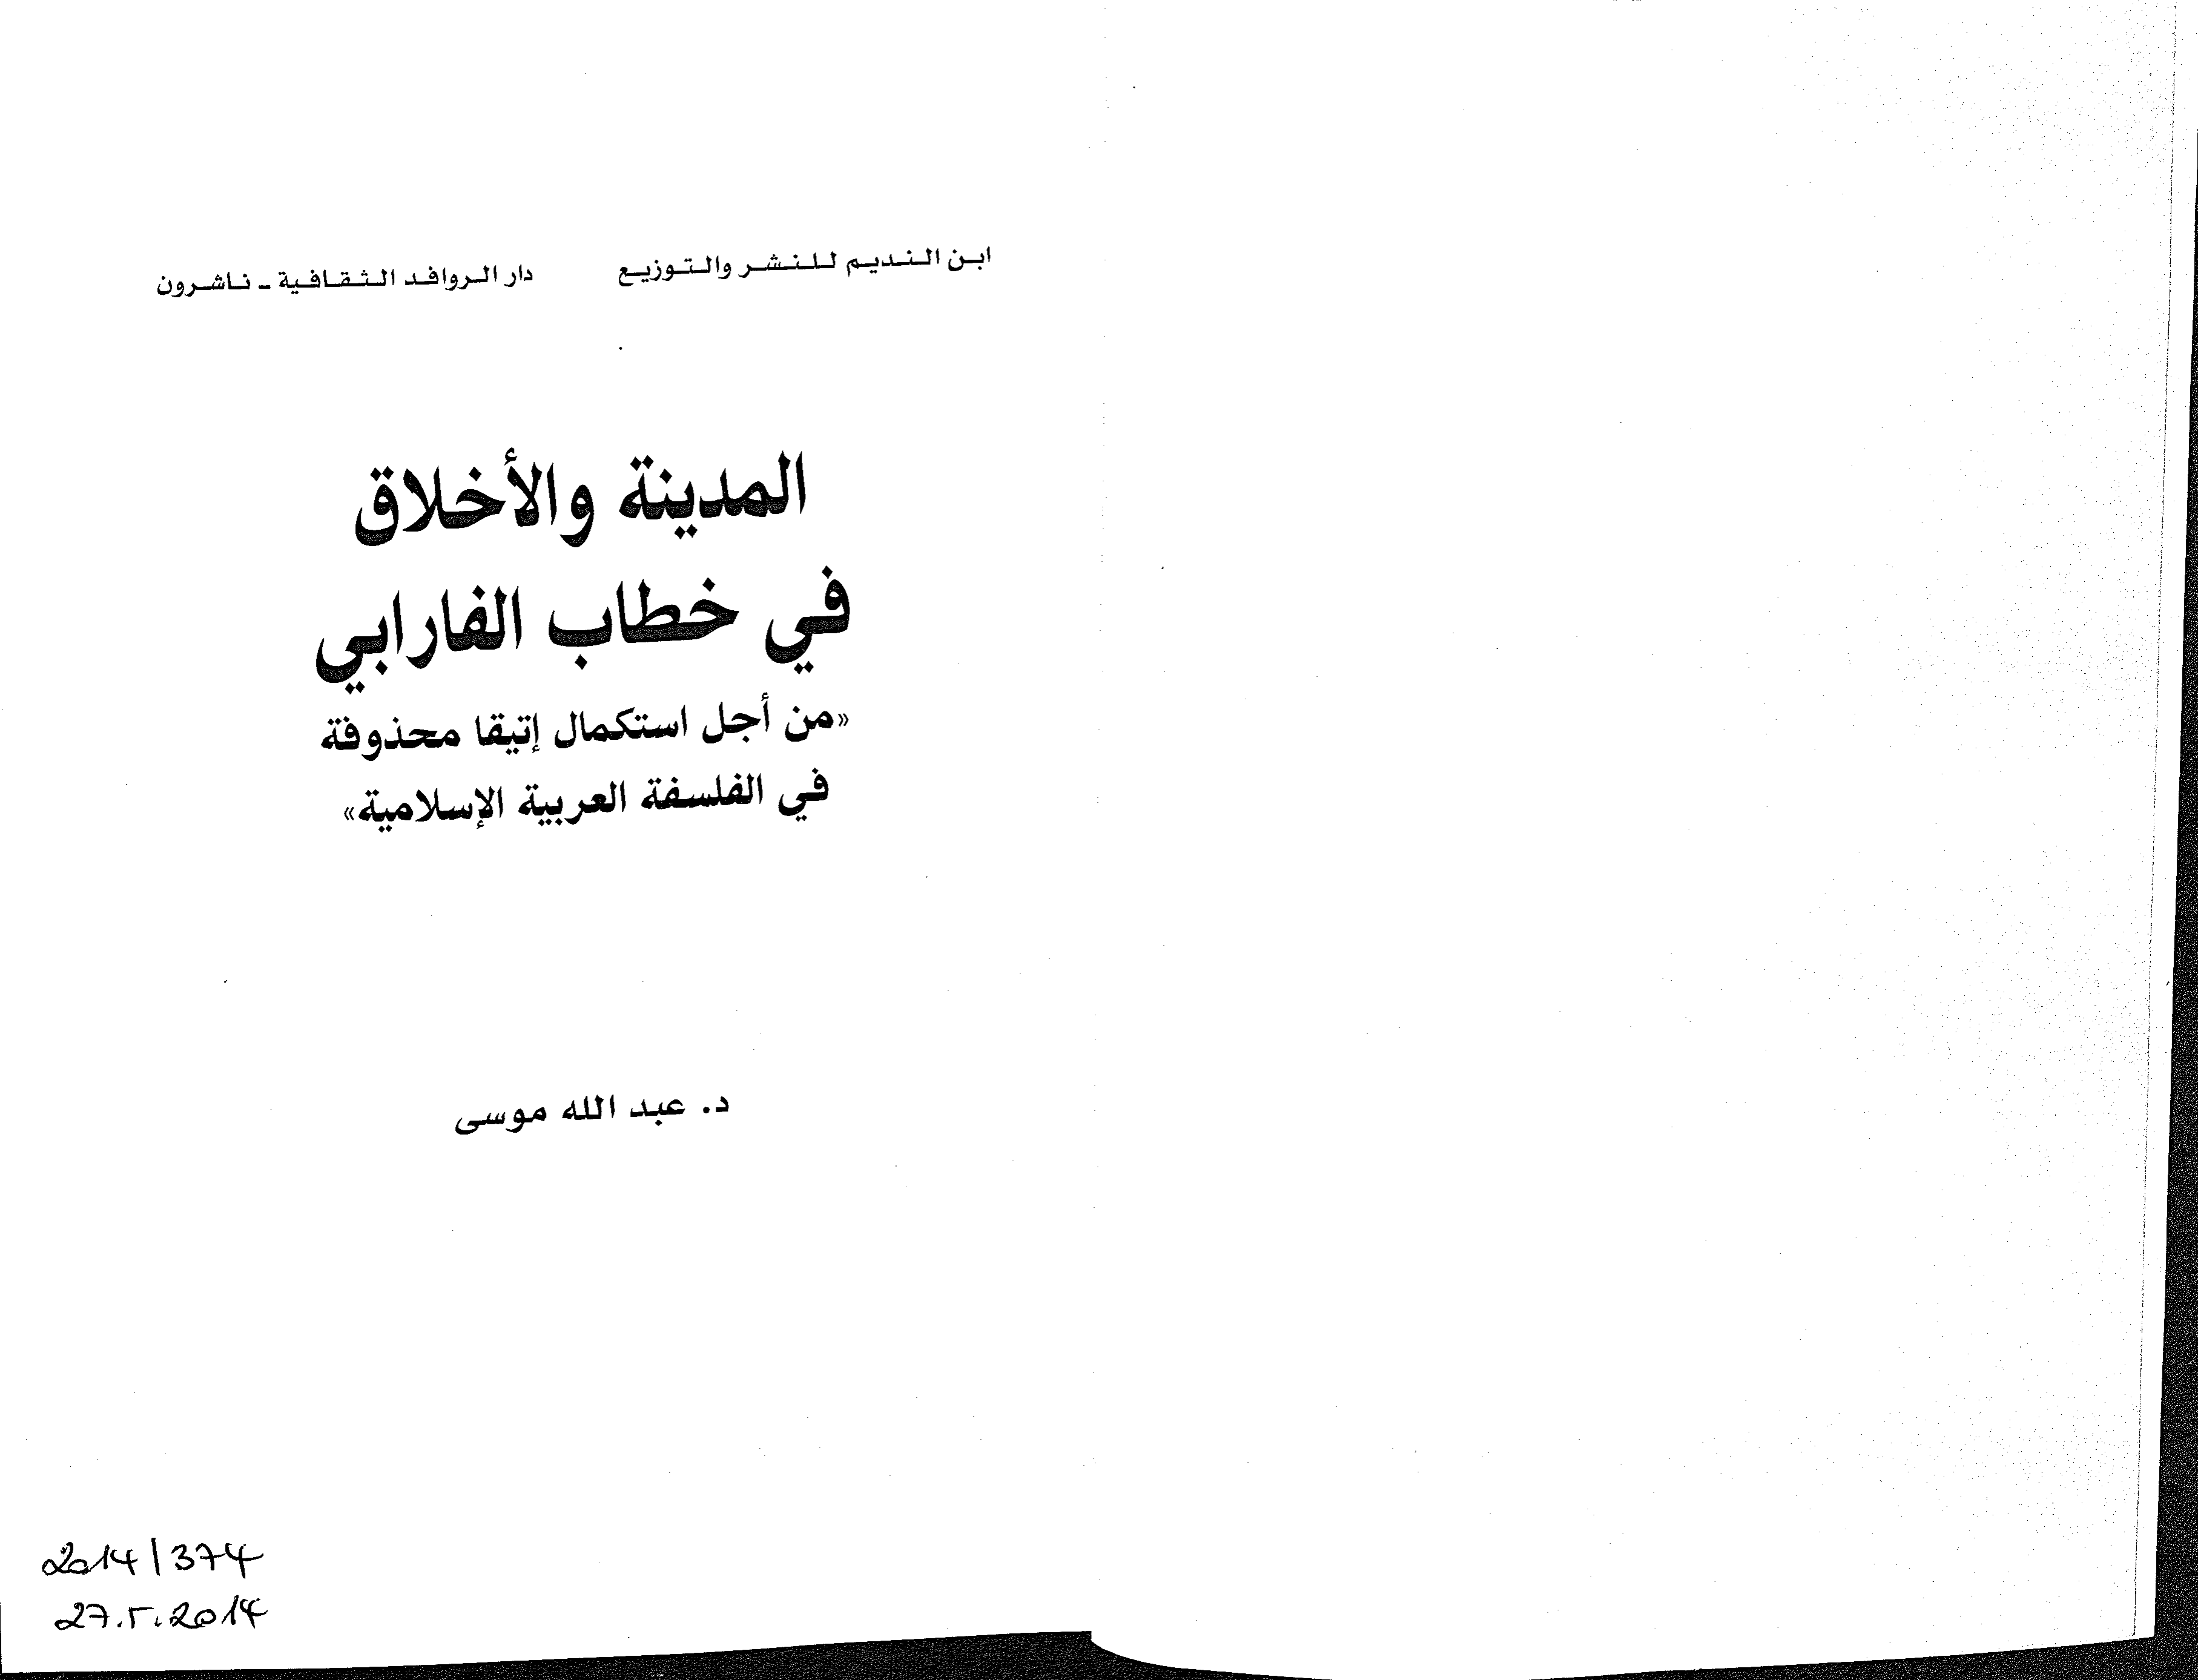 ابن النديم للنشر والتوزيع دار الروافد الثقافية ـ ناشرون
المدينة والأخلاق
في خطاب الفارابي
«من أجل استكمال إتيقا محذوفة
في الفلسفة العربية الإسلامية»
د. عبد الله موسى
2014/374
27.5.2014